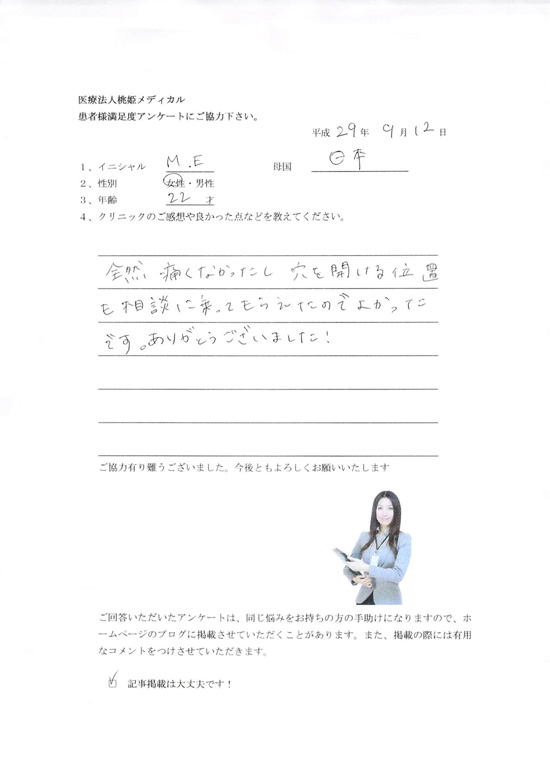 医療法人桃姫メディカル
患者様満足度アンケートにご協力下さい。
平成 29年 9月12日
1、イニシャル M.E 母国 日本
2、性別 女性・男性
3、年齢 22 才
4、クリニックのご感想や良かった点などを教えてください。
全然 痛くなかったし 穴を開ける位置
も相談に乗ってもらえたのでよかった
です。ありがとうございました!
ご協力有り難うございました。今後ともよろしくお願いいたします
ご回答いただいたアンケートは、同じ悩みをお持ちの方の手助けになりますので、ホ
ームページのブログに掲載させていただくことがあります。また、掲載の際には有用
なコメントをつけさせていただきます。
記事掲載は大丈夫です!